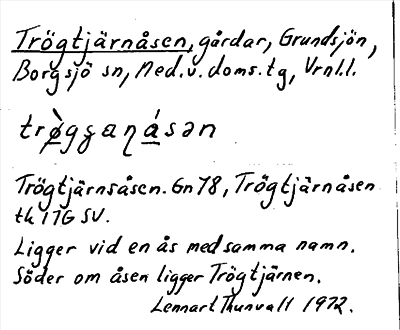 Trögtjärnåsen, gårdar, Grundsjön,
Borgsjö sn, Med.v.doms.tg, Vrnl.l.
Trögtjärnsåsen. Gn 78, Trögtjärnåsen
tk 17G SV.
Ligger vid en ås med samma namn.
Söder om åsen ligger Trögtjärnen.
Lennart Thunvall 1972.